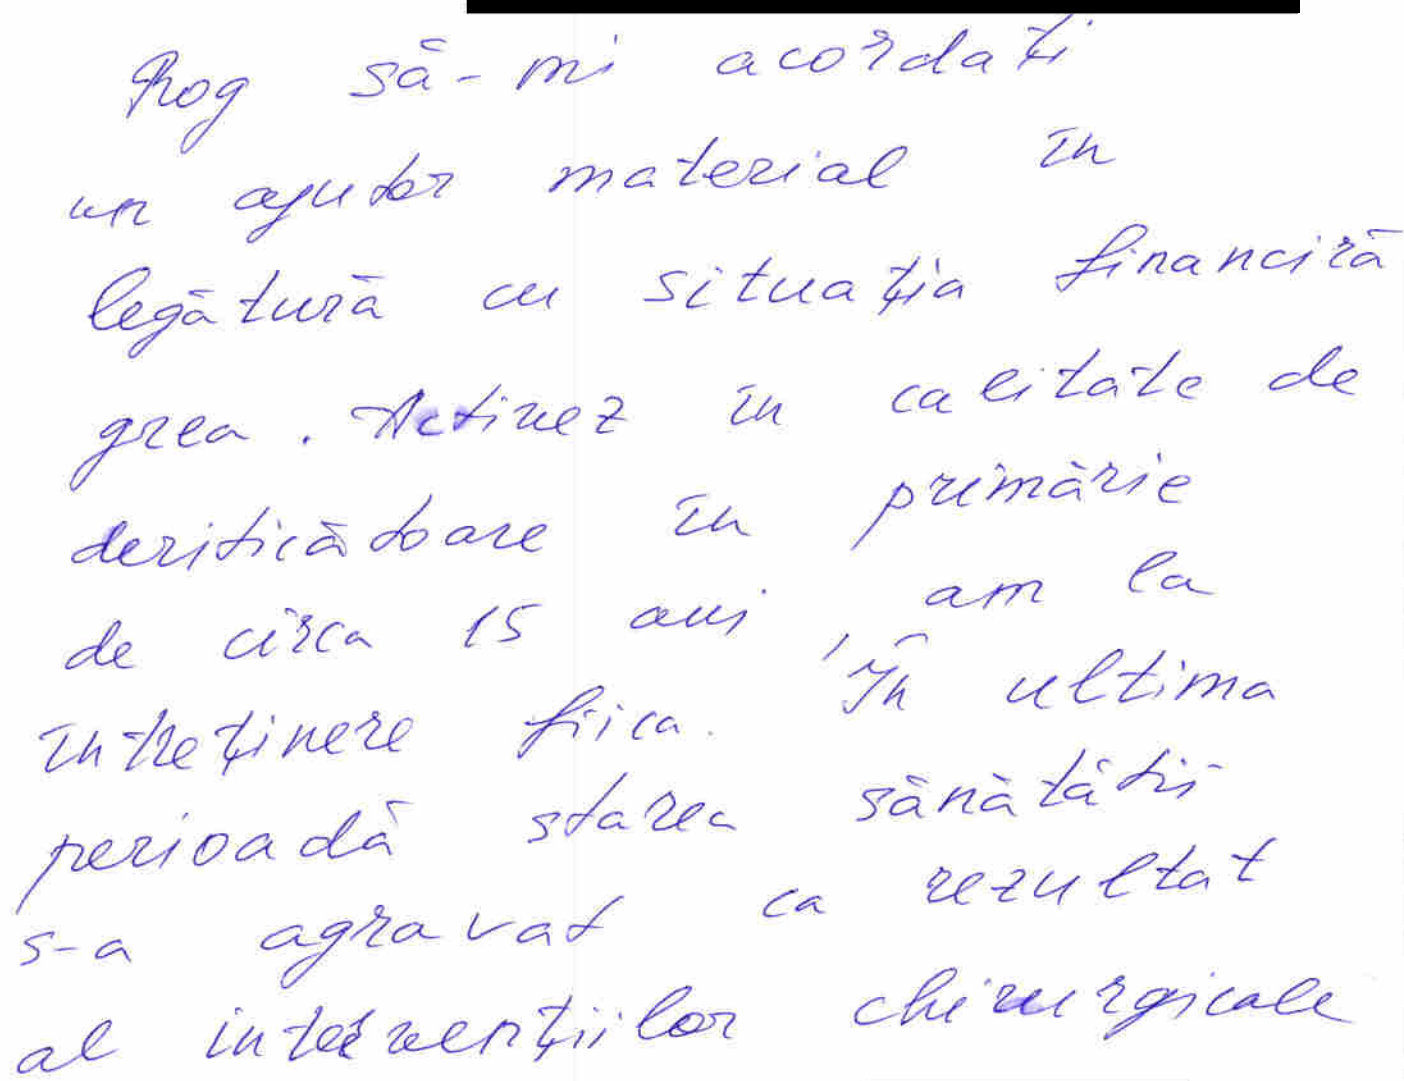 Rog să-mi acordați
un ajutor material în
legătură cu situația financiră
grea. Activez în calitate de
deriticătoare în primărie
de circa 15 ani, am la
întreținere fiica. În ultima
perioadă starea sănătății
s-a agravat ca rezultat
al intervențiilor chirurgicale